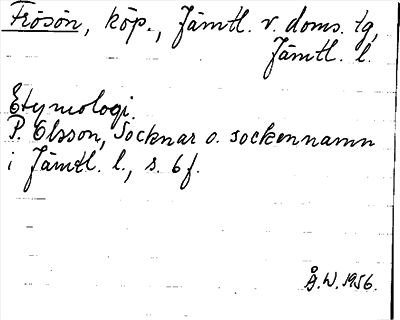 Frösön, köp., Jämtl. v. doms. tg,
Jämtl. l.
Etymologi.
P. Olsson, Socknar o. sockennamn
i Jämtl. l., s. 6 f.
Å. W. 1956.